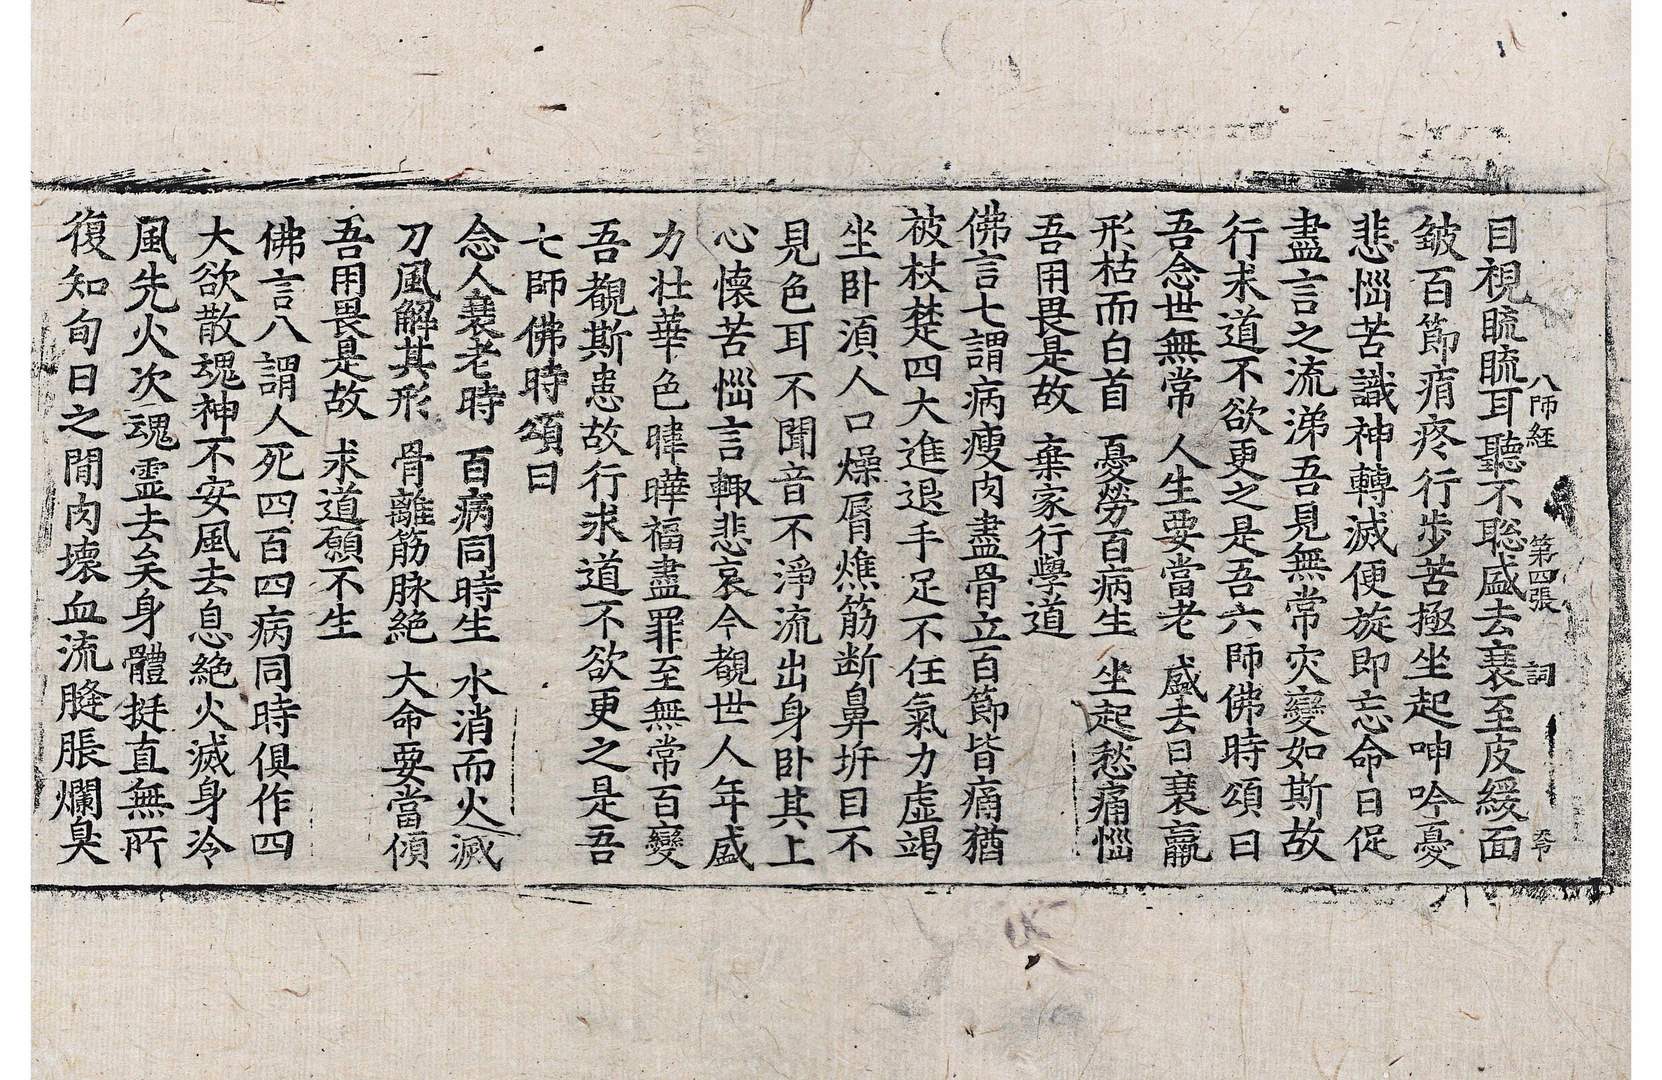 八師経 第四張 詞
目視䀮䀮耳聽不聡盛去衰至皮緩面
皺百節痟疼行歩苦極坐起呻吟憂
悲惱苦識神轉滅便旋即忘命日促
盡言之流涕吾見無常灾變如斯故
行求道不欲更之是吾六師佛時頌曰
吾念世無常 人生要當老 盛去日衰羸
形枯而白首 憂勞百病生 坐起愁痛惱
吾用畏是故 棄家行學道
佛言七謂病瘦肉盡骨立百節皆痛猶
被杖楚四大進退手足不任氣力虚竭
坐卧湏人口燥脣燋筋断鼻坼目不
見色耳不聞音不淨流出身卧其上
心懷苦惱言輙悲哀今覩世人年盛
力壮華色暐曄福盡罪至無常百變
吾覩斯患故行求道不欲更之是吾
七師佛時頌曰
念人衰老時 百病同時生 水消而火滅
刀風解其形 骨離筋脉絶 大命要當傾
吾用畏是故 求道願不生
佛言八謂人死四百四病同時俱作四
大欲散魂神不安風去息絶火滅身冷
風先火次魂霊去矣身體挺直無所
復知旬日之間肉壊血流膖脹爛臭